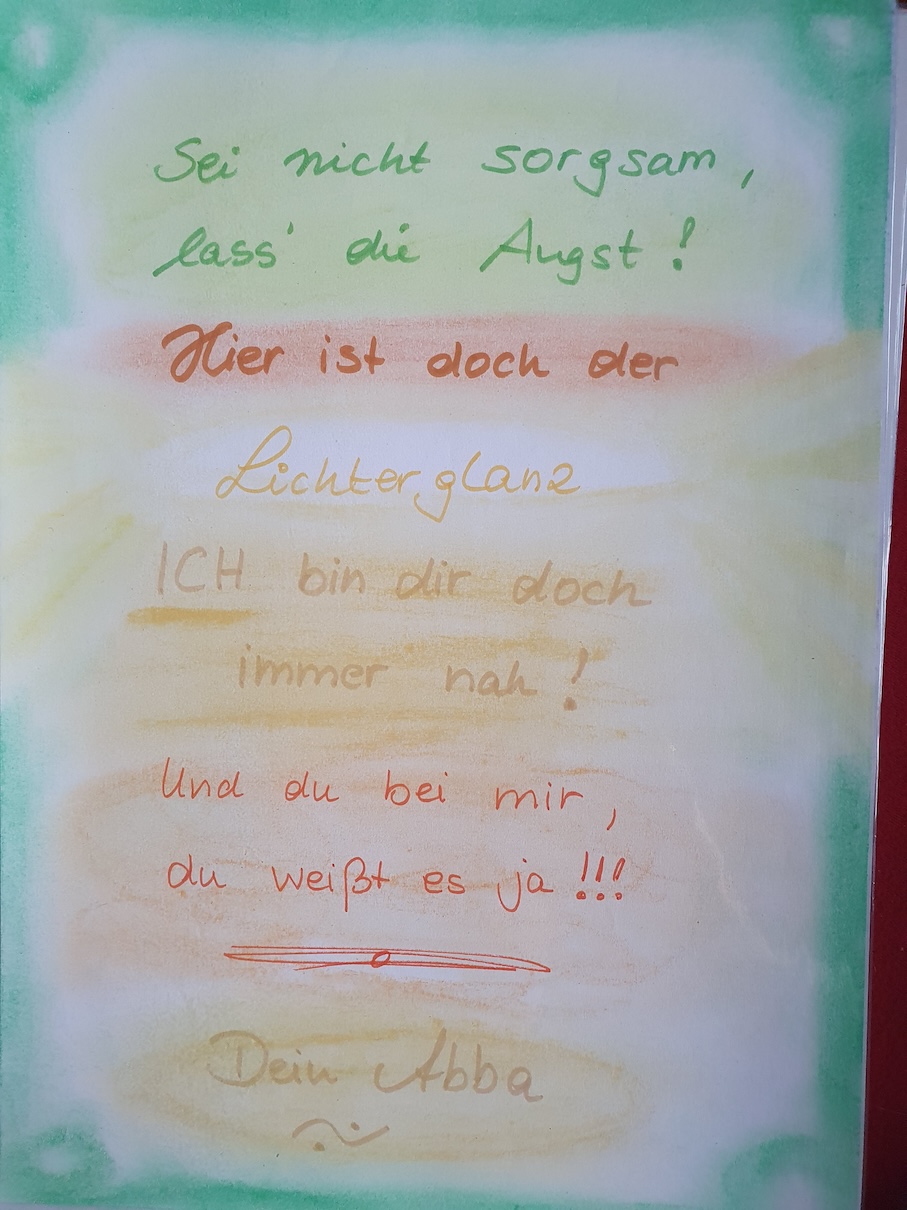 Sei nicht sorgsam,
lass' die Angst!
Hier ist doch der
Lichterglanz
ICH bin dir doch
immer nah!
Und du bei mir,
du weißt es ja!!!
Dein Abba